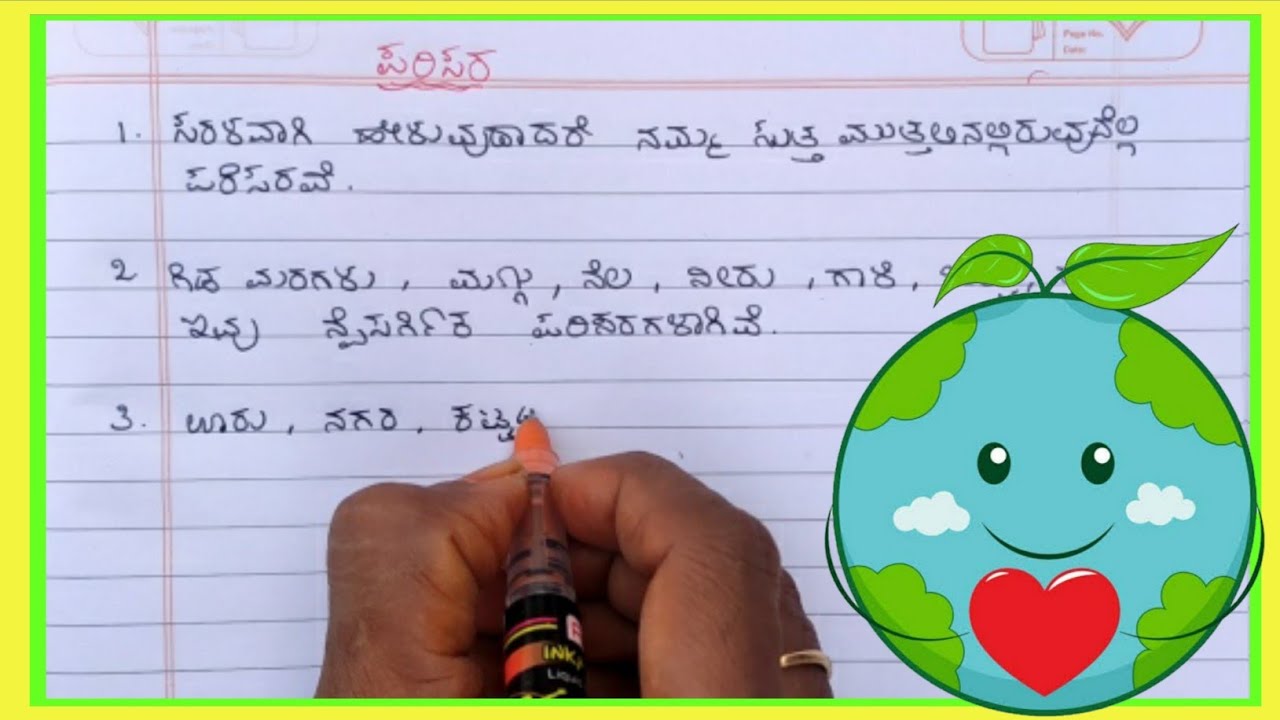 Page No.
Date:
ಪರಿಸರ
1. ಸರಳವಾಗಿ ಹೇಳುವುದಾದರೆ ನಮ್ಮ ಸುತ್ತ ಮುತ್ತಲಿನಲ್ಲಿರುವುದೆಲ್ಲ
ಪರಿಸರವೆ.
2 ಗಿಡ ಮರಗಳು, ಮಣ್ಣು, ನೆಲ, ನೀರು, ಗಾಳಿ,
ಇವು ನೈಸರ್ಗಿಕ ಪರಿಸರಗಳಾಗಿವೆ.
3. ಊರು, ನಗರ, ಕಟ್ಟಡ
INK
LIQUI